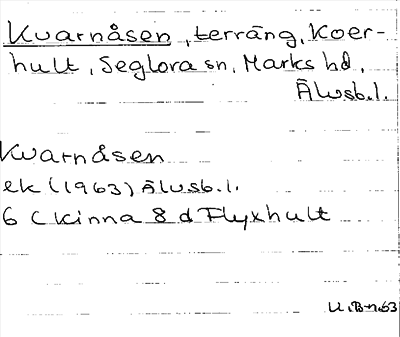 Kvarnåsen, terräng, Koer-
hult, Seglora sn, Marks hd,
Älvsb.l.
Kvarnåsen
ek (1963) Älvsb.l.
6 C Kinna 8 d Flyxhult
U.B-n63